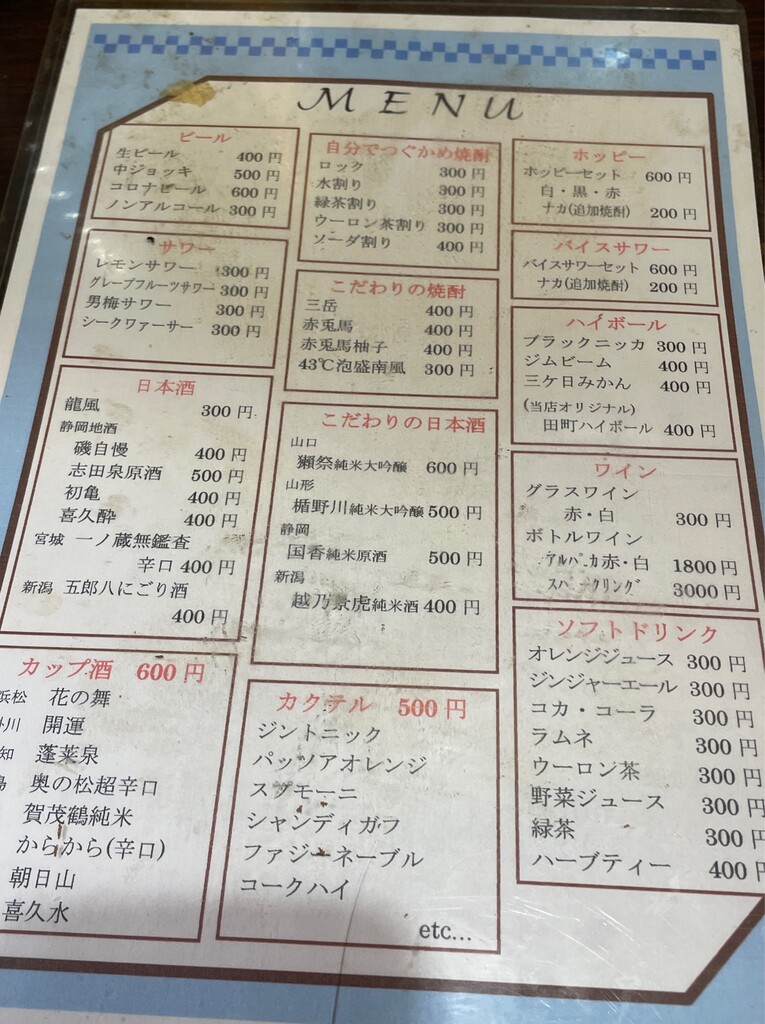 MENU
ビール
生ビール 400円
中ジョッキ 500円
コロナビール 600円
ノンアルコール 300円
サワー
レモンサワー 300円
グレープフルーツサワー 300円
男梅サワー 300円
シークヮァーサー 300円
日本酒
龍風 300円
静岡地酒
磯自慢 400円
志田泉原酒 500円
初亀 400円
喜久酔 400円
宮城 一ノ蔵無鑑査
辛口 400円
新潟 五郎八にごり酒
400円
カップ酒 600円
浜松 花の舞
川 開運
知 蓬莱泉
奥の松超辛口
賀茂鶴純米
からから(辛口)
朝日山
喜久水
自分でつぐかめ焼酎
ロック 300円
水割り 300円
緑茶割り 300円
ウーロン茶割り 300円
ソーダ割り 400円
こだわりの焼酎
三岳 400円
赤兎馬 400円
赤兎馬柚子 400円
43℃泡盛南風 300円
こだわりの日本酒
山口
獺祭純米大吟醸 600円
山形
楯野川純米大吟醸 500円
静岡
国香純米原酒 500円
新潟
越乃景虎純米酒 400円
カクテル 500円
ジントニック
パッソアオレンジ
スプモーニ
シャンディガフ
ファジーネーブル
コークハイ
etc...
ホッピー
ホッピーセット 600円
白・黒・赤
ナカ(追加焼酎) 200円
バイスサワー
バイスサワーセット 600円
ナカ(追加焼酎) 200円
ハイボール
ブラックニッカ 300円
ジムビーム 400円
三ケ日みかん 400円
(当店オリジナル)
田町ハイボール 400円
ワイン
グラスワイン
赤・白 300円
ボトルワイン
アルパカ赤・白 1800円
スパークリング 3000円
ソフトドリンク
オレンジジュース 300円
ジンジャーエール 300円
コカ・コーラ 300円
ラムネ 300円
ウーロン茶 300円
野菜ジュース 300円
緑茶 300円
ハーブティー 400円